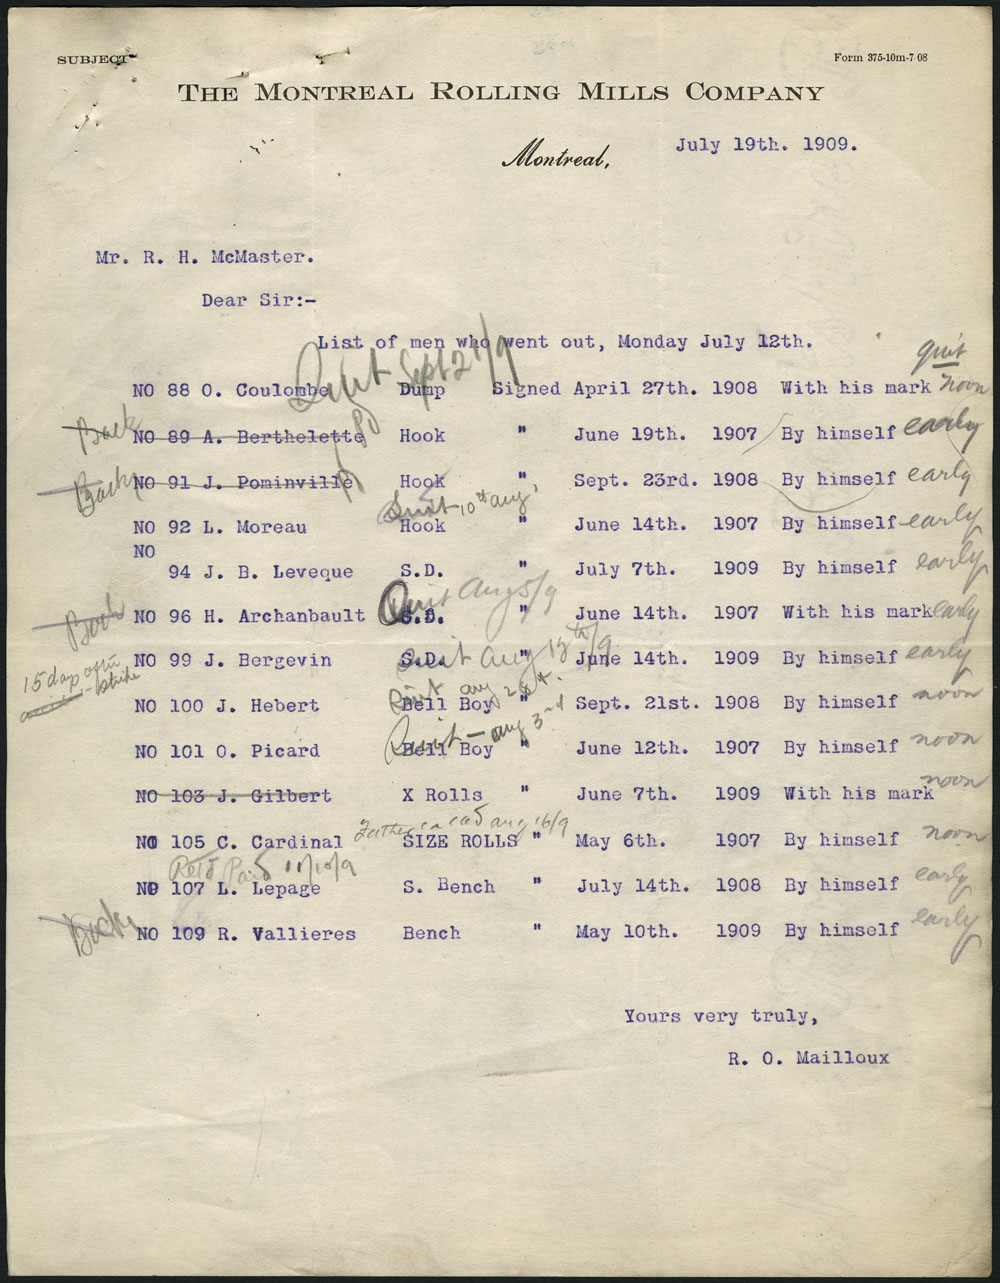 SUBJECT
Form 375-10m-7 08
THE MONTREAL ROLLING MILLS COMPANY
Montreal, July 19th. 1909.
Mr. R. H. McMaster.
Dear Sir:-
List of men who went out, Monday July 12th.
quit
Quit Sept 21/9
NO 88 O. Coulombe Dump Signed April 27th. 1908 With his mark noon
Back NO 89 A. Berthelette Hook " June 19th. 1907 By himself early
Back NO 91 J. Pominville Hook " Sept. 23rd. 1908 By himself early
Quit 10th aug
NO 92 L. Moreau Hook " June 14th. 1907 By himself early
NO
94 J. B. Leveque S.D. " July 7th. 1909 By himself early
Quit Aug 5/9
Back NO 96 H. Archanbault S.D. " June 14th. 1907 With his mark early
Quit Aug 19th/9
15 days after strike
NO 99 J. Bergevin S.D. " June 14th. 1909 By himself early
Quit aug
NO 100 J. Hebert Bell Boy " Sept. 21st. 1908 By himself noon
Quit - aug 3rd
NO 101 O. Picard Bell Boy " June 12th. 1907 By himself noon
NO 103 J. Gilbert X Rolls " June 7th. 1909 With his mark noon
Father called aug 16/9
NO 105 C. Cardinal SIZE ROLLS " May 6th. 1907 By himself noon
Retd Paid 11/10/9
NO 107 L. Lepage S. Bench " July 14th. 1908 By himself early
Back NO 109 R. Vallieres Bench " May 10th. 1909 By himself early
Yours very truly,
R. O. Mailloux